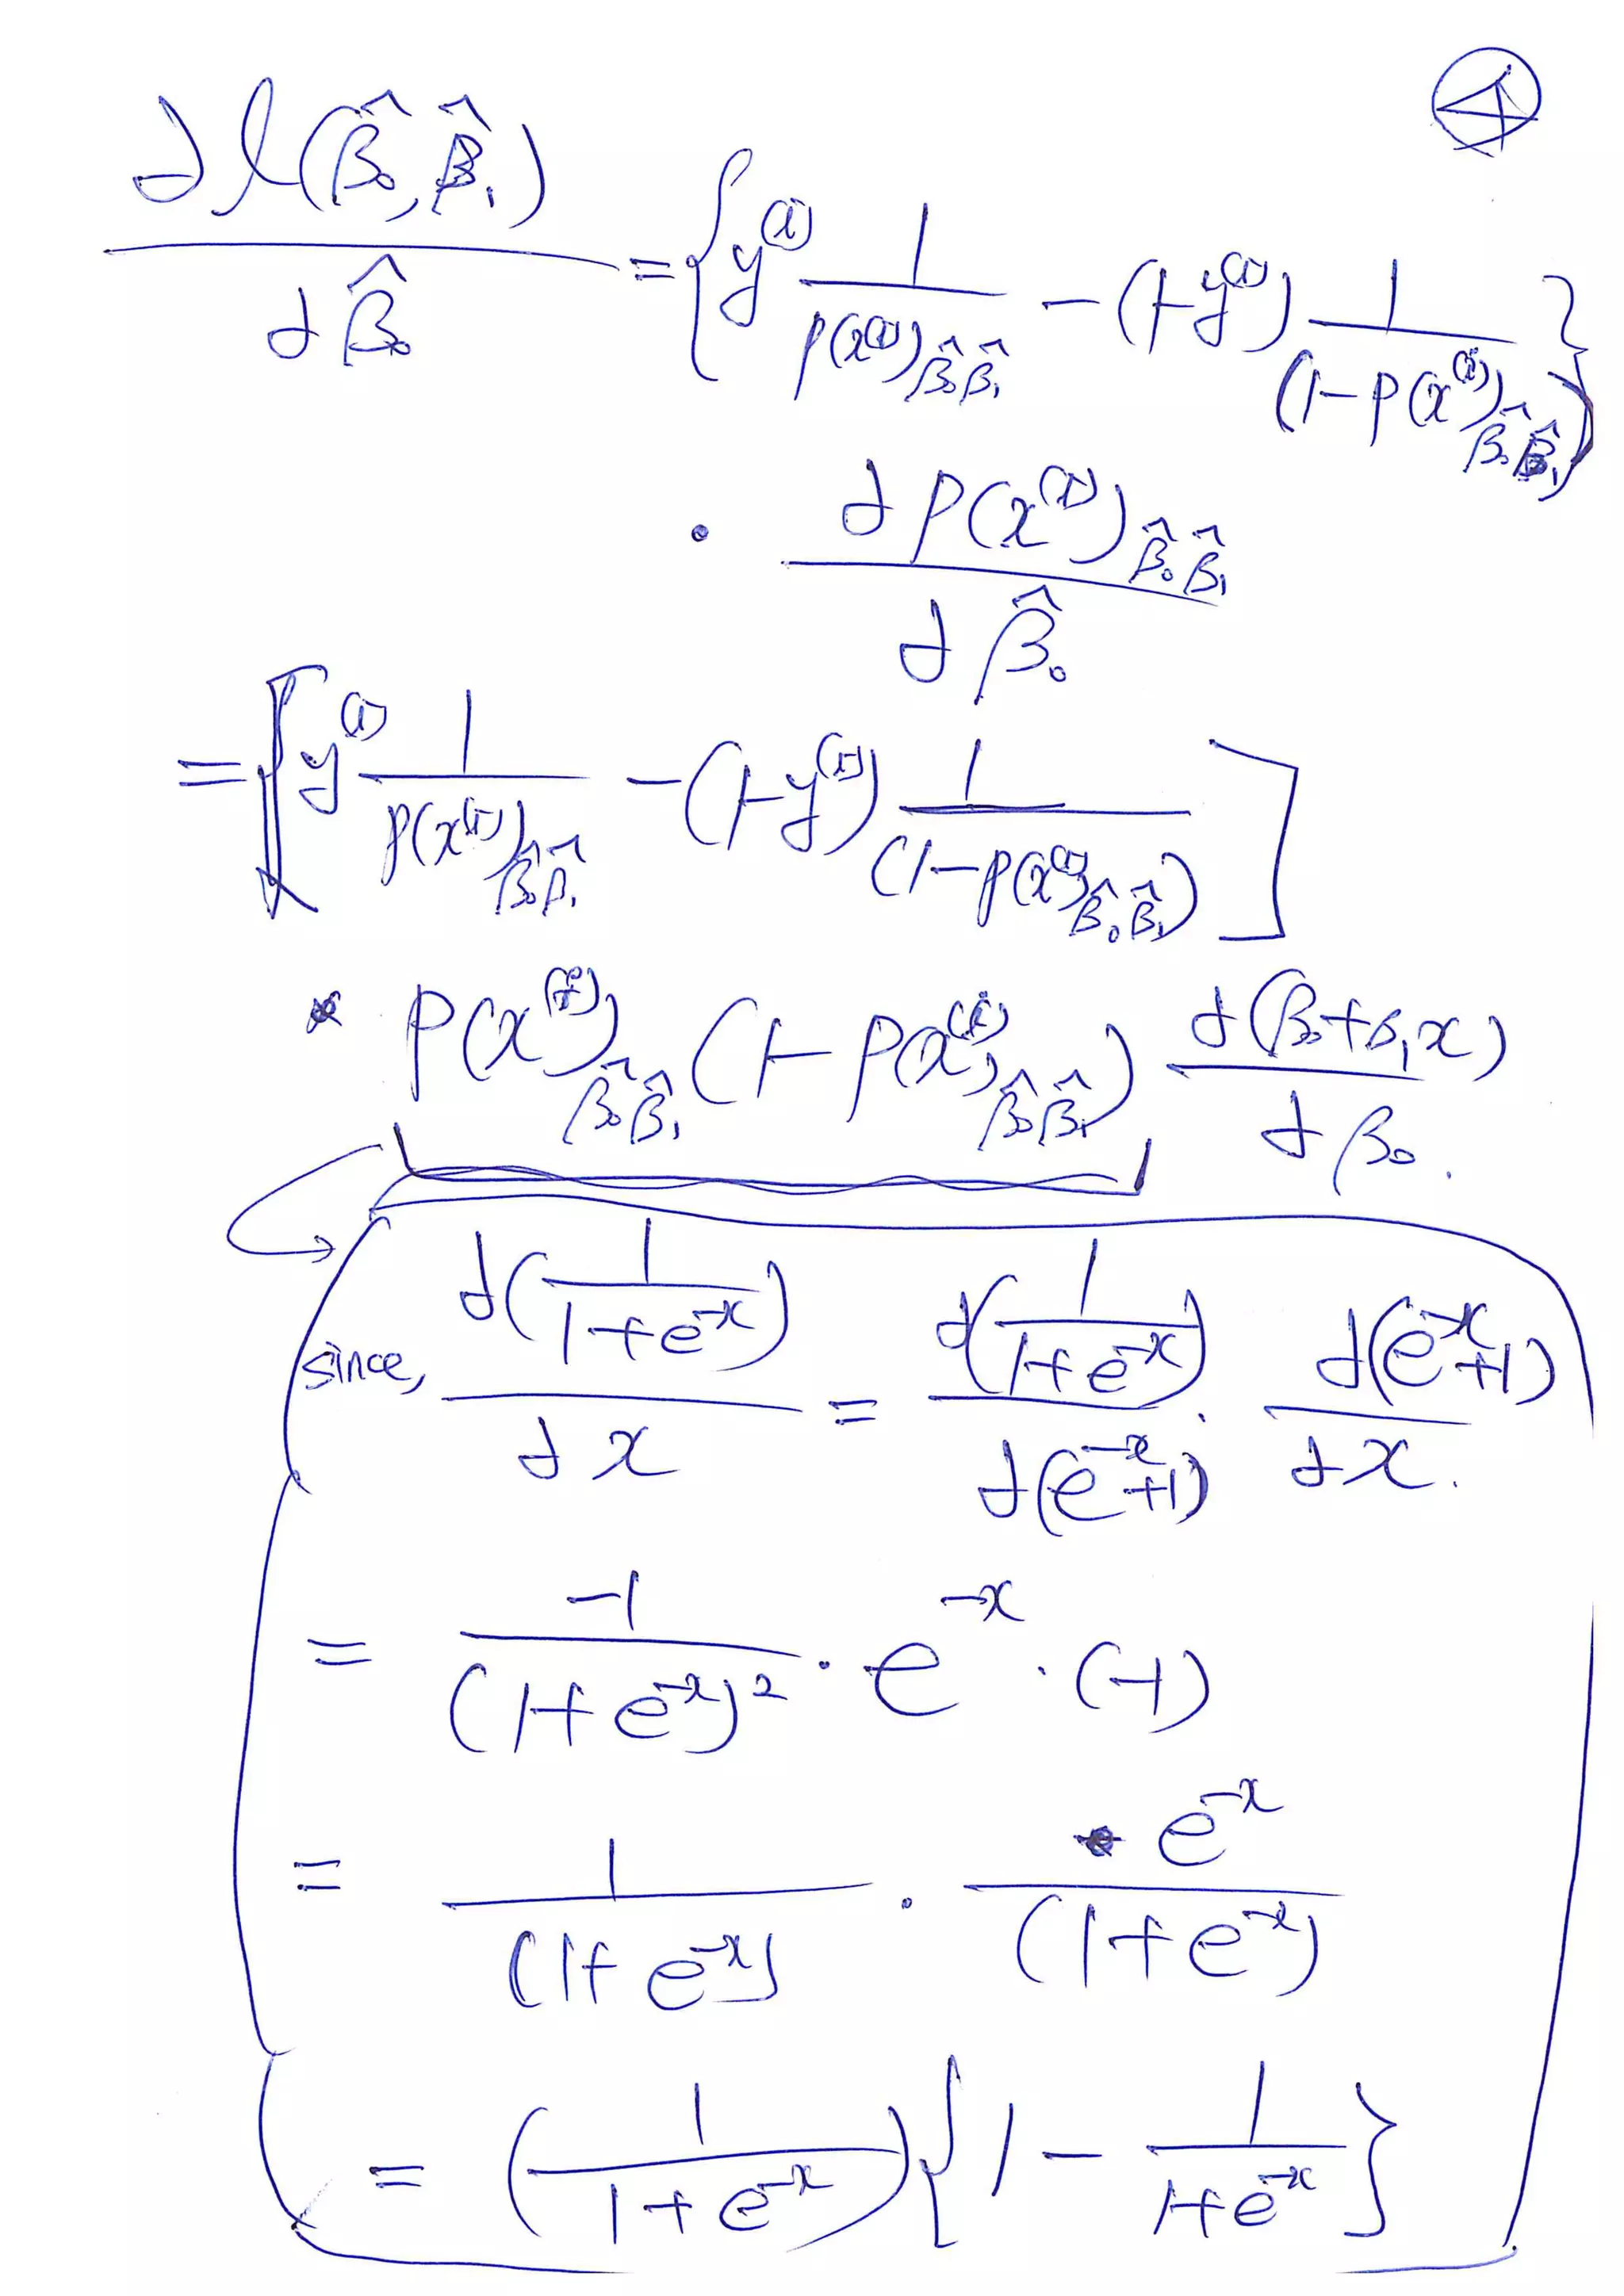 ④
∂l(β̂₀, β̂₁) / ∂β̂₀ = { y⁽ⁱ⁾ 1 / p(x⁽ⁱ⁾)β̂₀β̂₁ − (1−y⁽ⁱ⁾) 1 / (1−p(x⁽ⁱ⁾)β̂₀β̂₁) }
· ∂p(x⁽ⁱ⁾)β̂₀β̂₁ / ∂β̂₀
= [ y⁽ⁱ⁾ 1 / p(x⁽ⁱ⁾)β̂₀β̂₁ − (1−y⁽ⁱ⁾) 1 / (1−p(x⁽ⁱ⁾)β̂₀β̂₁) ]
* p(x⁽ⁱ⁾)β̂₀β̂₁ (1−p(x⁽ⁱ⁾)β̂₀β̂₁) ∂(β₀+β₁x) / ∂β₀.
since, d(1 / 1+e⁻ˣ) / dx = d(1 / 1+e⁻ˣ) / d(e⁻ˣ+1) · d(e⁻ˣ+1) / dx.
= −1 / (1+e⁻ˣ)² · e⁻ˣ · (−1)
= 1 / (1+e⁻ˣ) · e⁻ˣ / (1+e⁻ˣ)
= (1 / 1+e⁻ˣ) { 1 − 1 / 1+e⁻ˣ }